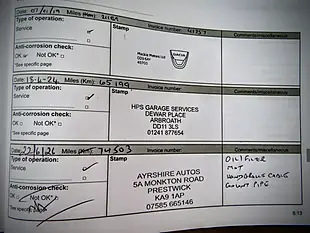 Date: 07/01/19 Miles (Km): Invoice number:
Type of operation:
Stamp
Comments/miscellaneous
Service ✓
Mackie Motors Ltd
DACIA
Anti-corrosion check:
OK Not OK*
*See specific page
Date: 15-4-24. Miles (Km): 65 199 Invoice number:
Type of operation:
Stamp
Comments/miscellaneous
Service ✓
HPS GARAGE SERVICES
DEWAR PLACE
ARBROATH
DD11 3LS
01241 877654
Anti-corrosion check:
OK Not OK*
*See specific page
Date: 22/6/26 Miles 74303 Invoice number:
Type of operation:
Stamp
Comments/miscellaneous
Service ✓
AYRSHIRE AUTOS
5A MONKTON ROAD
PRESTWICK
KA9 1AP
07585 665146
OIL/FILTER
MOT
HANDBRAKE CABLE
PIPE
Anti-corrosion check:
OK Not OK*
*See specific page
6.13